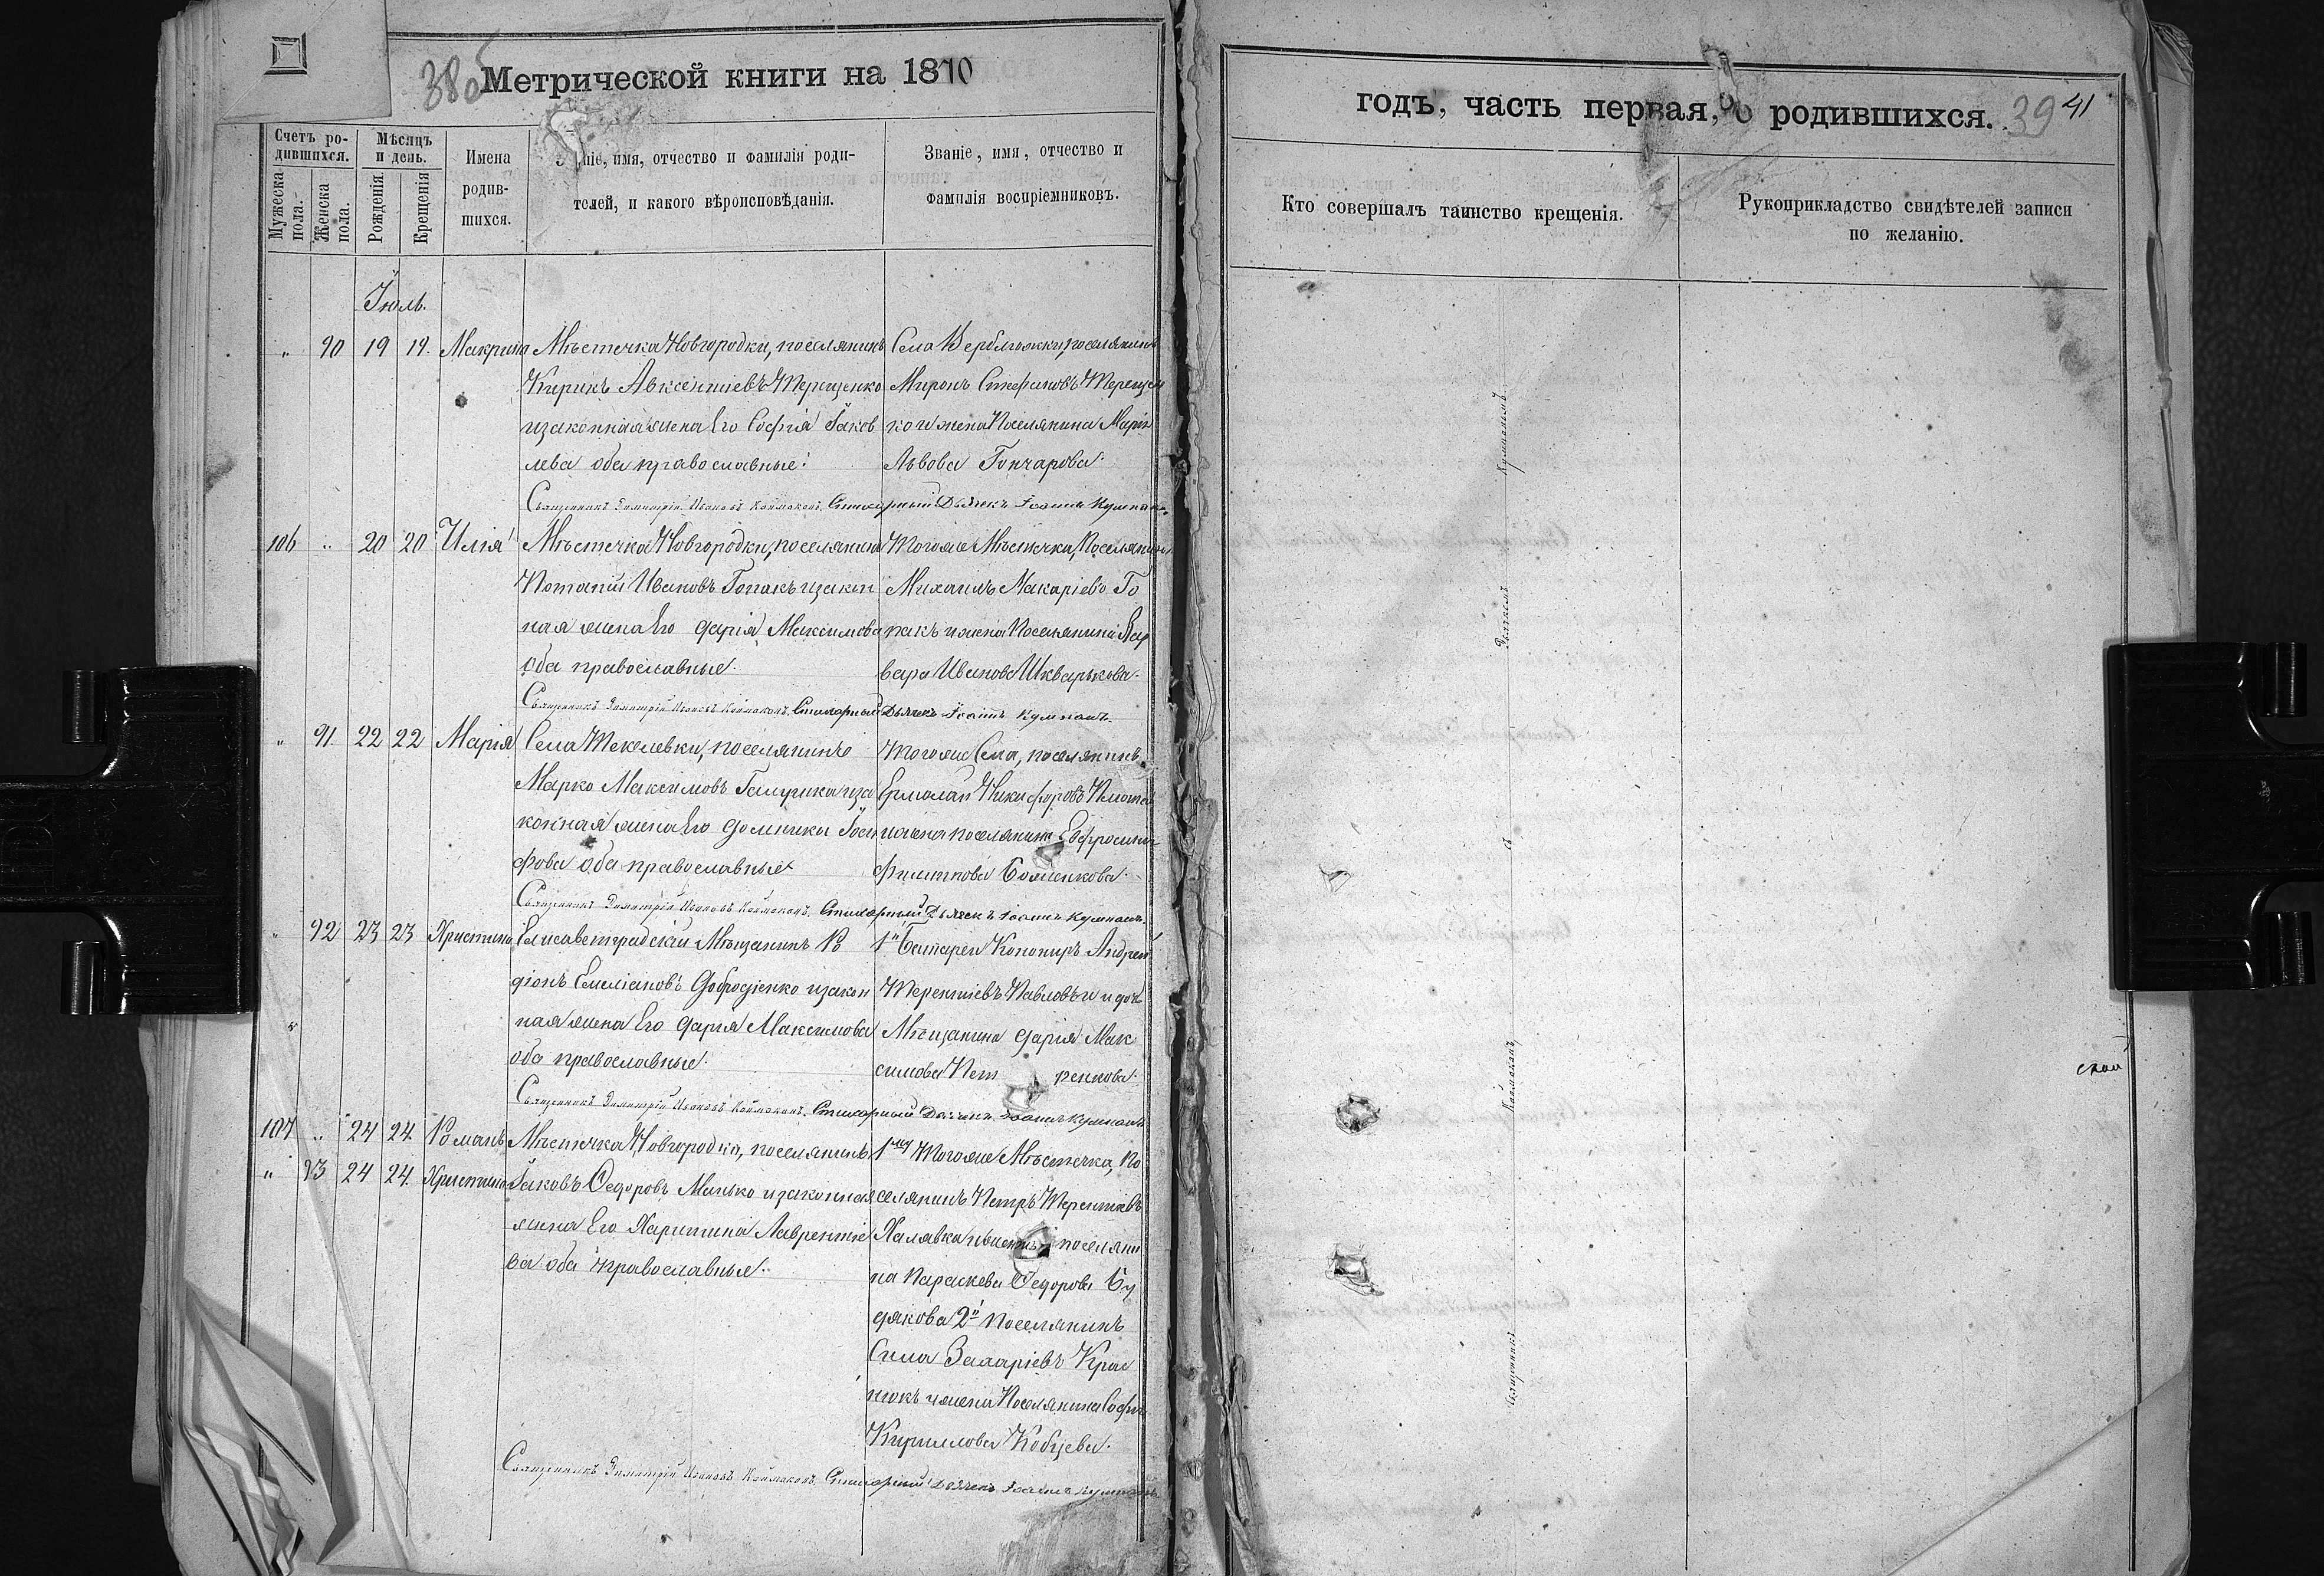 38об
Метрической книги на 1870
Счетъ ро-
дившихся.
Мужеска пола.
Женска пола.
Мѣсяцъ
и день.
Рожденія.
Крещенія
Имена
родив-
шихся.
ніе, имя, отчество и фамилія роди-
телей, и какого вѣроисповѣданія.
Званіе, имя, отчество и
фамилія воспріемниковъ.
Іюль.
" 90 19 19. Макрина Мѣстечка Новгородки, поселянинъ
Кирикъ Авксентіевъ Терещенко
изаконная жена Его Софія Іаков
лева оба православные.
Села Верблюжки, поселянинъ
Миронъ Стефановъ Терещен
ко и жена Поселянина Марія
Львова Гончарова.
Священникъ Димитрій Ивановъ Каймаканъ, Стихарный Дьячекъ Іоаннъ Кумпанъ.
106 " 20 20 Илія Мѣстечка Новгородки, поселянинъ
Потапій Ивановъ Гопакъ изакон
ная жена Его Дарія Максимова
оба православные.
Тогоже Мѣстечка, Поселянинъ
Михаилъ Макаріевъ Го
пакъ и жена Поселянина Вар
вара Иванова Шкварькова.
Священникъ Димитрій Ивановъ Каймаканъ, Стихарный Дьячекъ Іоаннъ Кумпанъ.
" 91. 22 22 Марія Села Текелевки, поселянинъ
Марко Максимовъ Галушка иза
конная жена Его Домника Іоси
фова оба православные
Тогоже Села, поселянинъ
Ермолай Никифоровъ
и жена поселянина Евфросинія
Филиппова Боженкова.
Священникъ Димитрій Ивановъ Каймаканъ, Стихарный Дьячекъ Іоаннъ Кумпанъ.
" 92 23 23 Христина Елисаветградскій Мѣщанинъ Ро
діонъ Емеліановъ Добродіенко изакон
ная жена Его Дарія Максимова
оба православные.
1й Батареи Канониръ Андрей
Терентіевъ Павловъ и дочь
Мѣщанина Дарія Мак
симова Пет ренкова.
Священникъ Димитрій Ивановъ Каймаканъ, Стихарный Дьячекъ Іоаннъ Кумпанъ
107 " 24 24. Романъ Мѣстечка Новгородки, поселянинъ
" 93 24 24. Христина Іаковъ Федоровъ Манько изаконная
жена Его Харитина Лаврентіе
ва оба православные.
Тогоже Мѣстечка, По
селянинъ Петръ Терентіевъ
Халявка поселяни
на Параскева Федорова Бу
дякова 2й Поселянинъ
Сила Захаріевъ Крас
нюкъ и жена Поселянина Софія
Кириллова Кобцева.
Священникъ Димитрій Ивановъ Каймаканъ, Стихарный Дьячекъ Іоаннъ Кумпанъ
годъ, часть первая, о родившихся. 39 41
Кто совершалъ таинство крещенія.
Рукоприкладство свидѣтелей записи
по желанію.
Священникъ Каймаканъ съ Дьячкомъ Кумпаномъ
ской